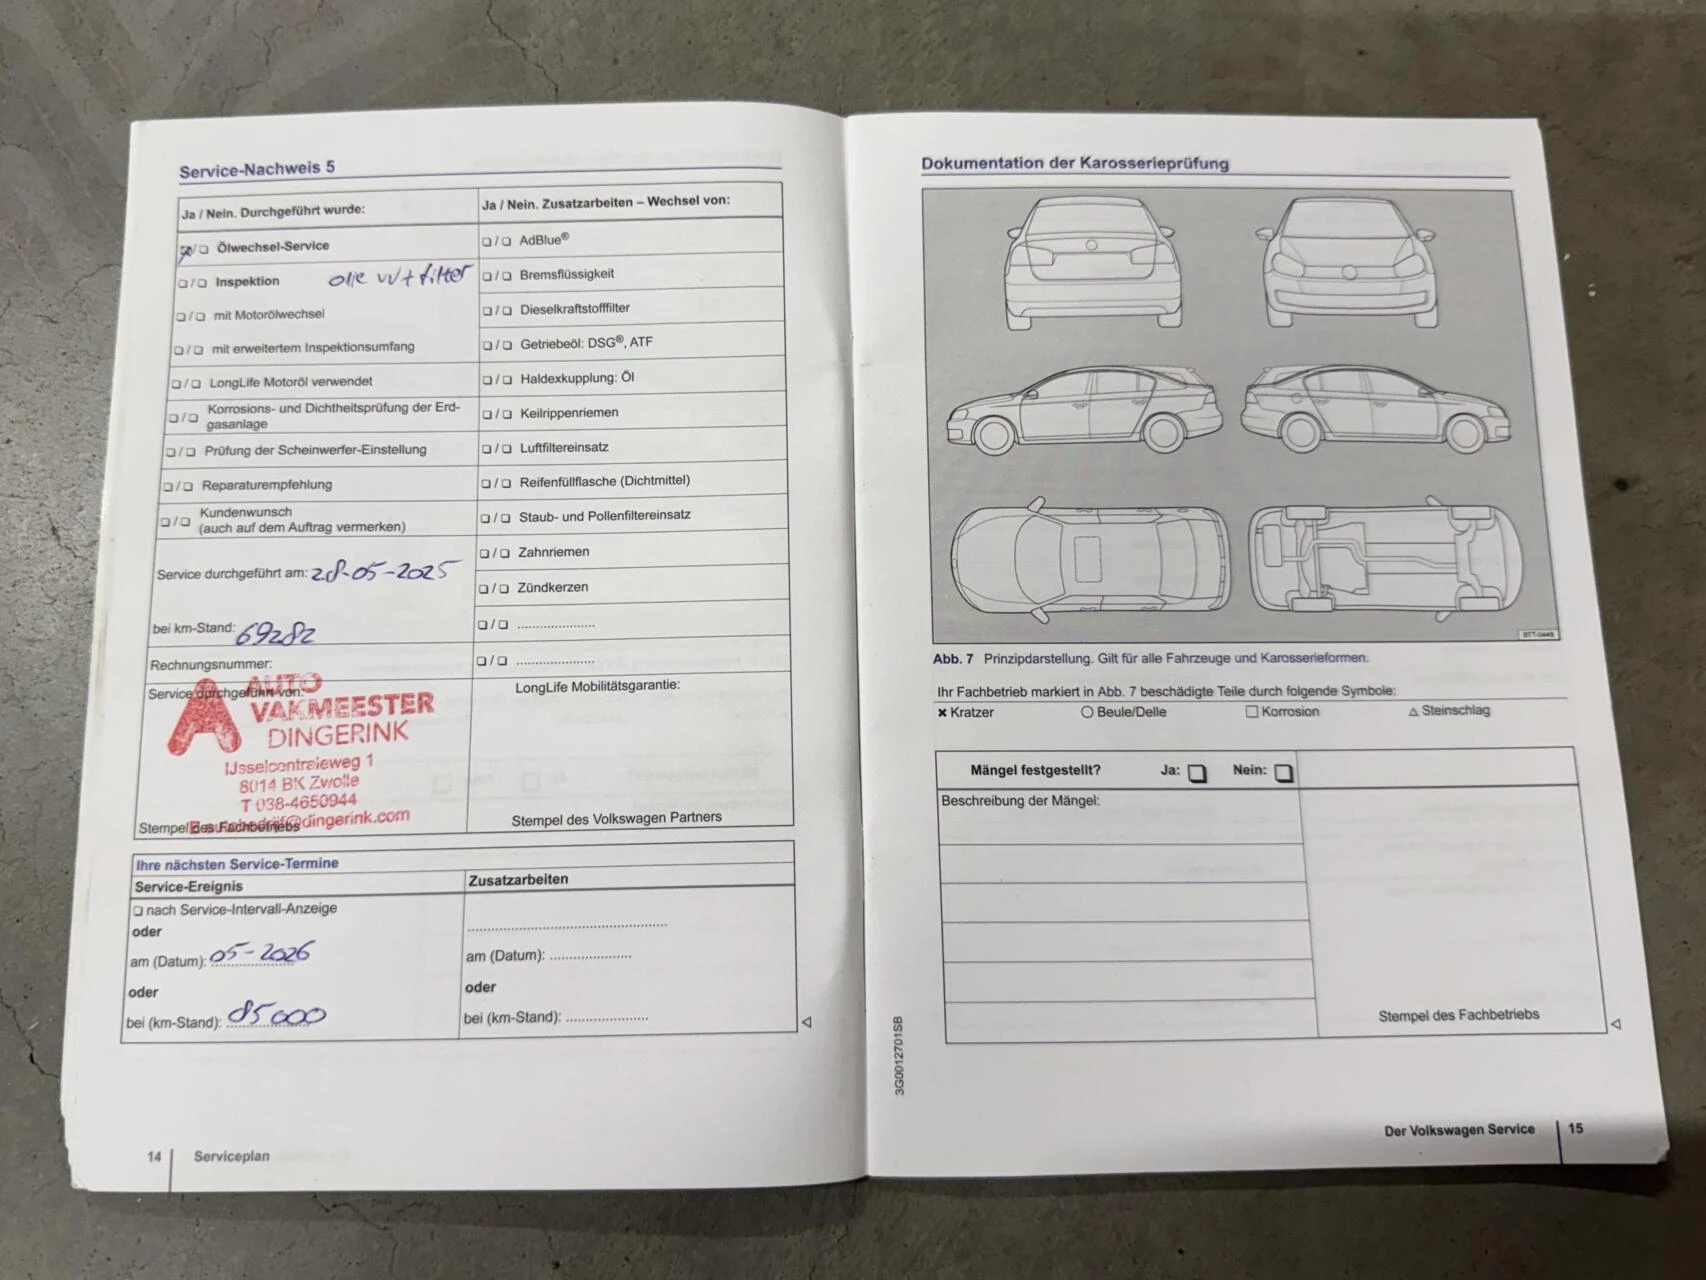 Service-Nachweis 5
Ja / Nein. Durchgeführt wurde:
Ölwechsel-Service
Inspektion
olie vv + filter
mit Motorölwechsel
mit erweitertem Inspektionsumfang
LongLife Motoröl verwendet
Korrosions- und Dichtheitsprüfung der Erd-
gasanlage
Prüfung der Scheinwerfer-Einstellung
Reparaturempfehlung
Kundenwunsch
(auch auf dem Auftrag vermerken)
Service durchgeführt am: 28-05-2025
bei km-Stand: 69282
Rechnungsnummer:
Service durchgeführt von:
AUTO
VAKMEESTER
DINGERINK
IJsselcentraleweg 1
8014 BK Zwolle
T 038-4650944
@dingerink.com
Stempel des Fachbetriebs
Ja / Nein. Zusatzarbeiten – Wechsel von:
AdBlue®
Bremsflüssigkeit
Dieselkraftstofffilter
Getriebeöl: DSG®, ATF
Haldexkupplung: Öl
Keilrippenriemen
Luftfiltereinsatz
Reifenfüllflasche (Dichtmittel)
Staub- und Pollenfiltereinsatz
Zahnriemen
Zündkerzen
LongLife Mobilitätsgarantie:
Stempel des Volkswagen Partners
Ihre nächsten Service-Termine
Service-Ereignis
nach Service-Intervall-Anzeige
oder
am (Datum): 05-2026
oder
bei (km-Stand): 85000
Zusatzarbeiten
am (Datum):
oder
bei (km-Stand):
14 Serviceplan
Dokumentation der Karosserieprüfung
BTT-0449
Abb. 7 Prinzipdarstellung. Gilt für alle Fahrzeuge und Karosserieformen.
Ihr Fachbetrieb markiert in Abb. 7 beschädigte Teile durch folgende Symbole:
Kratzer Beule/Delle Korrosion Steinschlag
Mängel festgestellt? Ja: Nein:
Beschreibung der Mängel:
Stempel des Fachbetriebs
3G0012701SB
Der Volkswagen Service 15